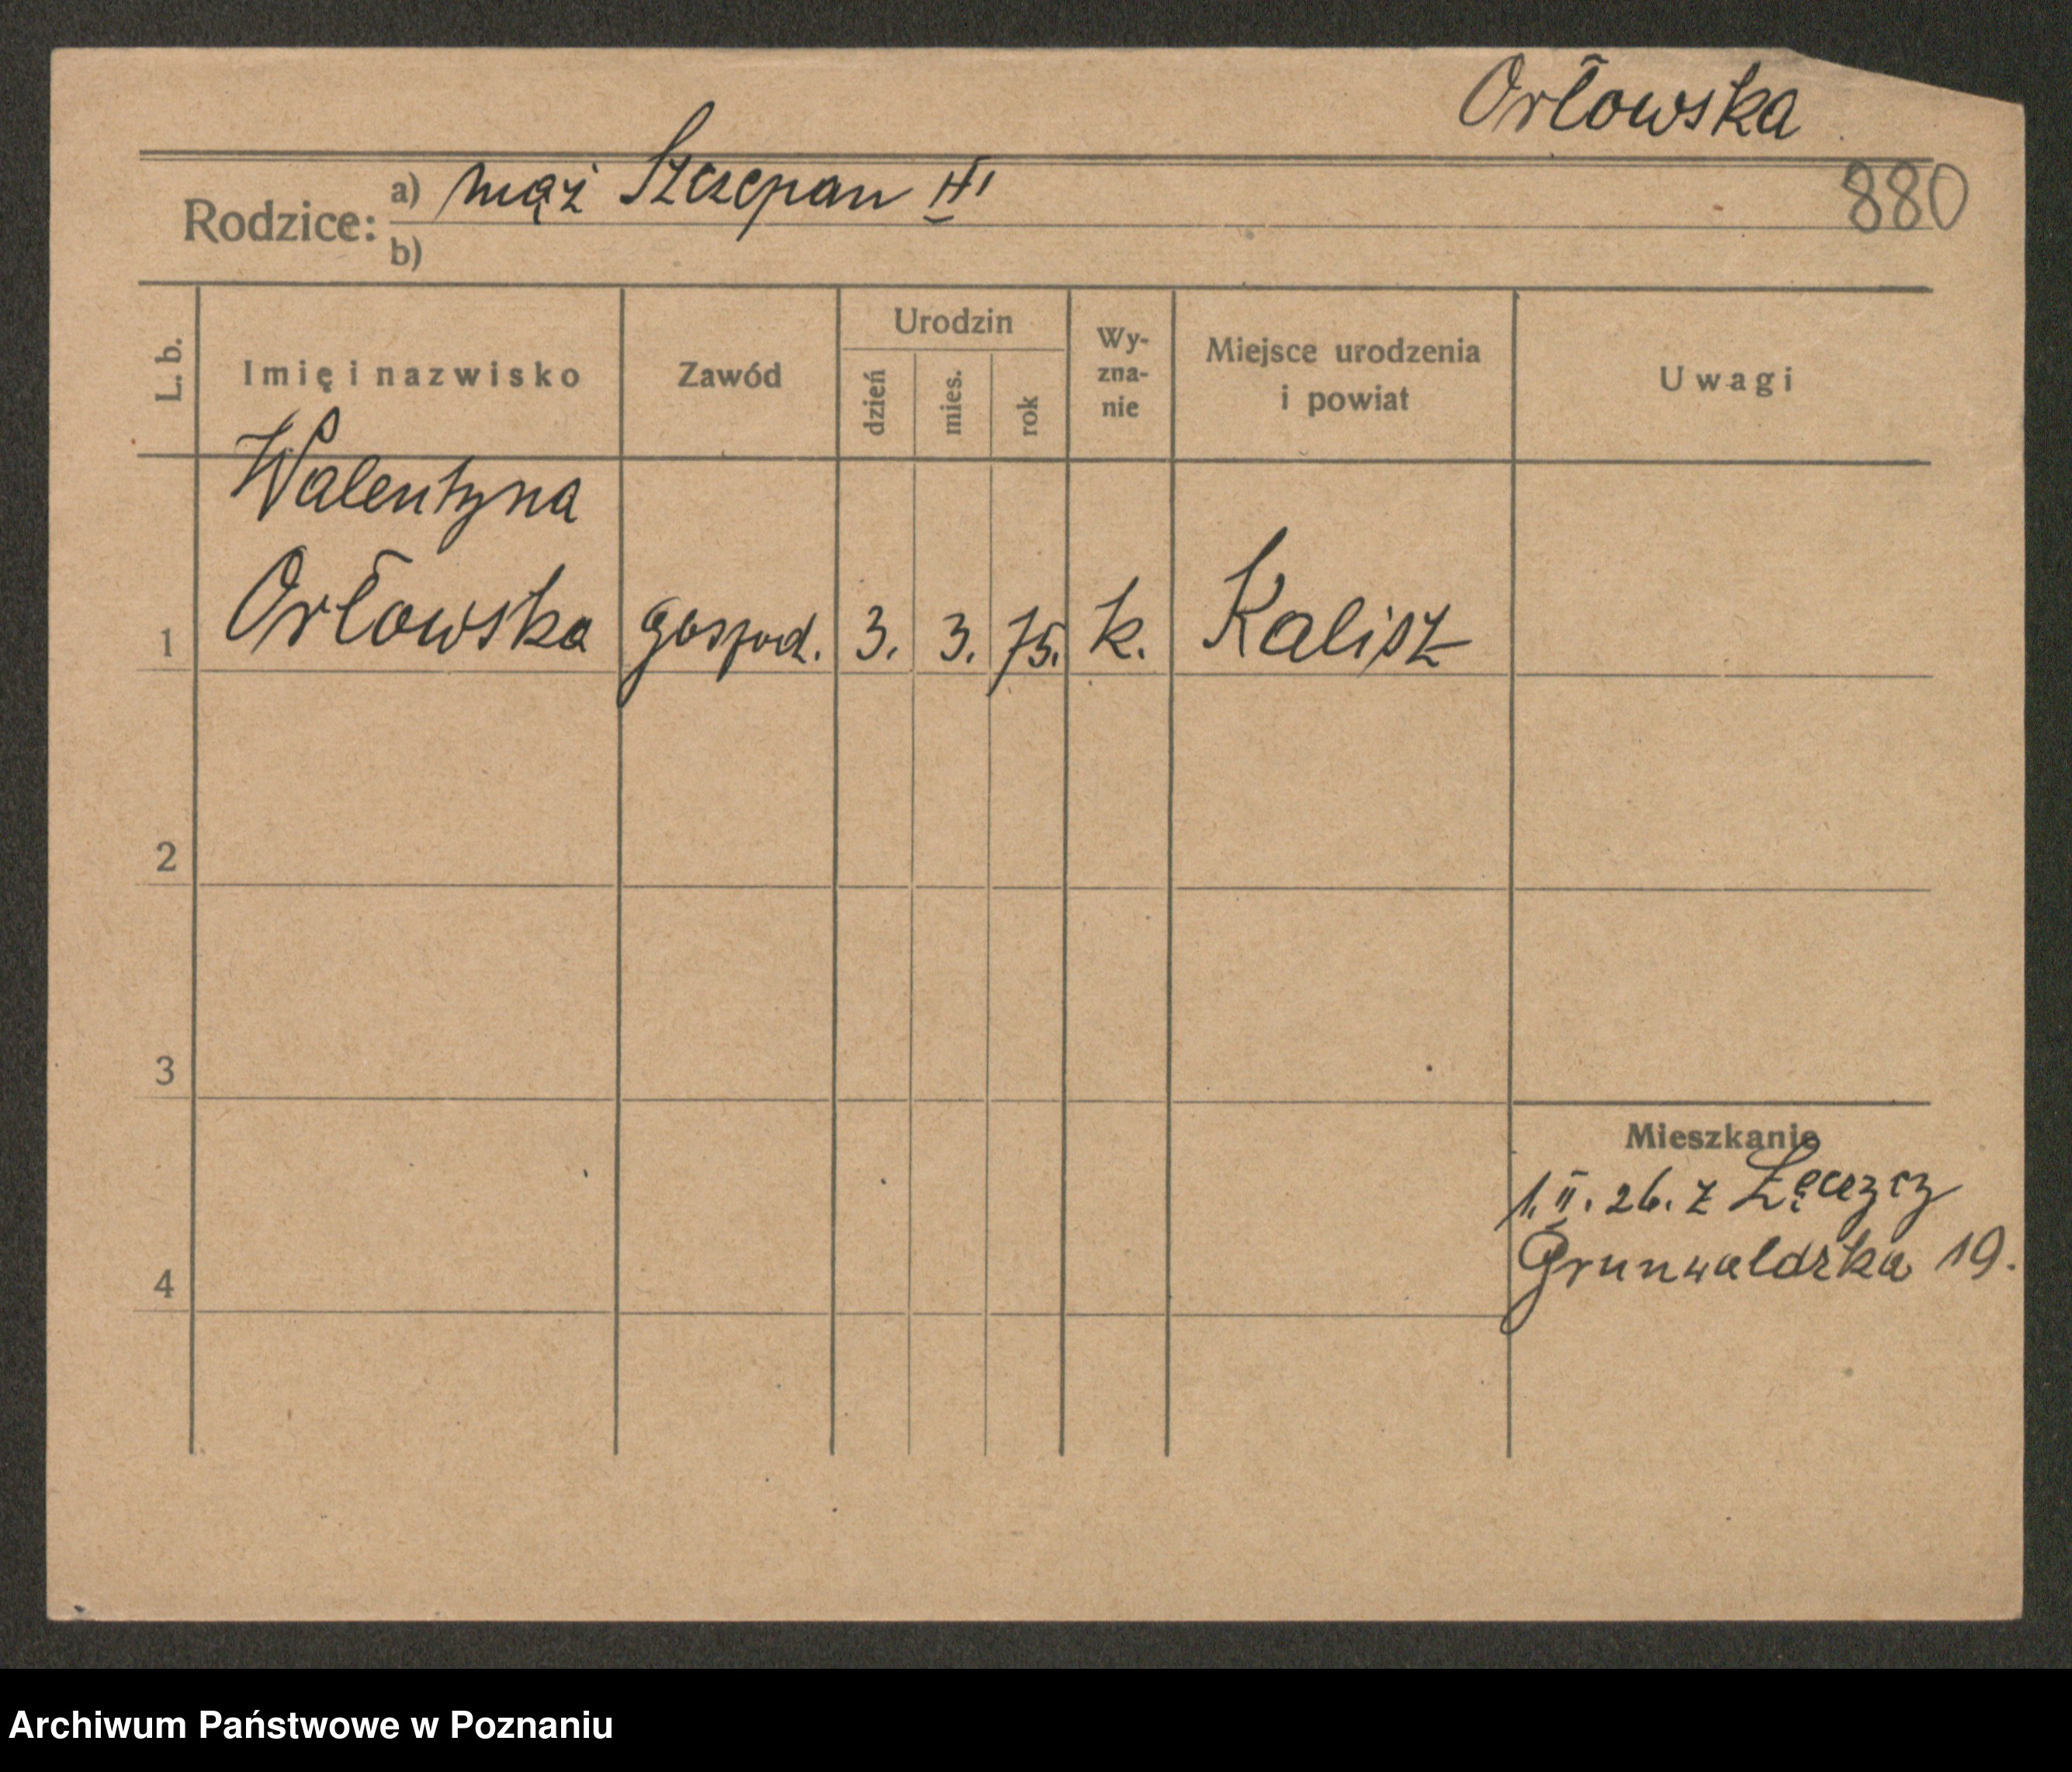 Orłowska
880
Rodzice: a) mąż Szczepan
b)
L. b.
Imię i nazwisko
Zawód
Urodzin
dzień
mies.
rok
Wy-
zna-
nie
Miejsce urodzenia
i powiat
Uwagi
Walentyna
1 Orłowska gospod. 3. 3. 75. k. Kalisz
2
3
Mieszkanie
1.II.26. z Łęczycy
Grunwaldzka 19.
4
Archiwum Państwowe w Poznaniu